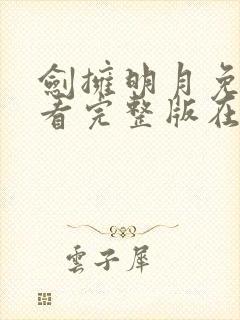 劍擁明月免
看完整版在
雲子犀